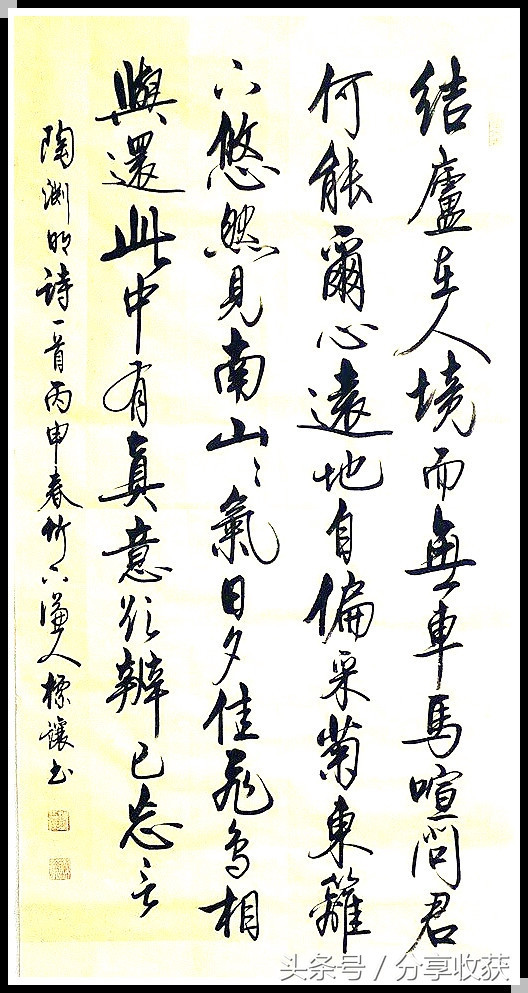 结廬在人境而無車馬喧问君
何能爾心遠地自偏采菊東籬
下悠然見南山〻氣日夕佳飛鸟相
與還此中有真意欲辨已忘言
陶渊明詩一首丙申春竹下谦人標讓书
头条号 / 分享收获